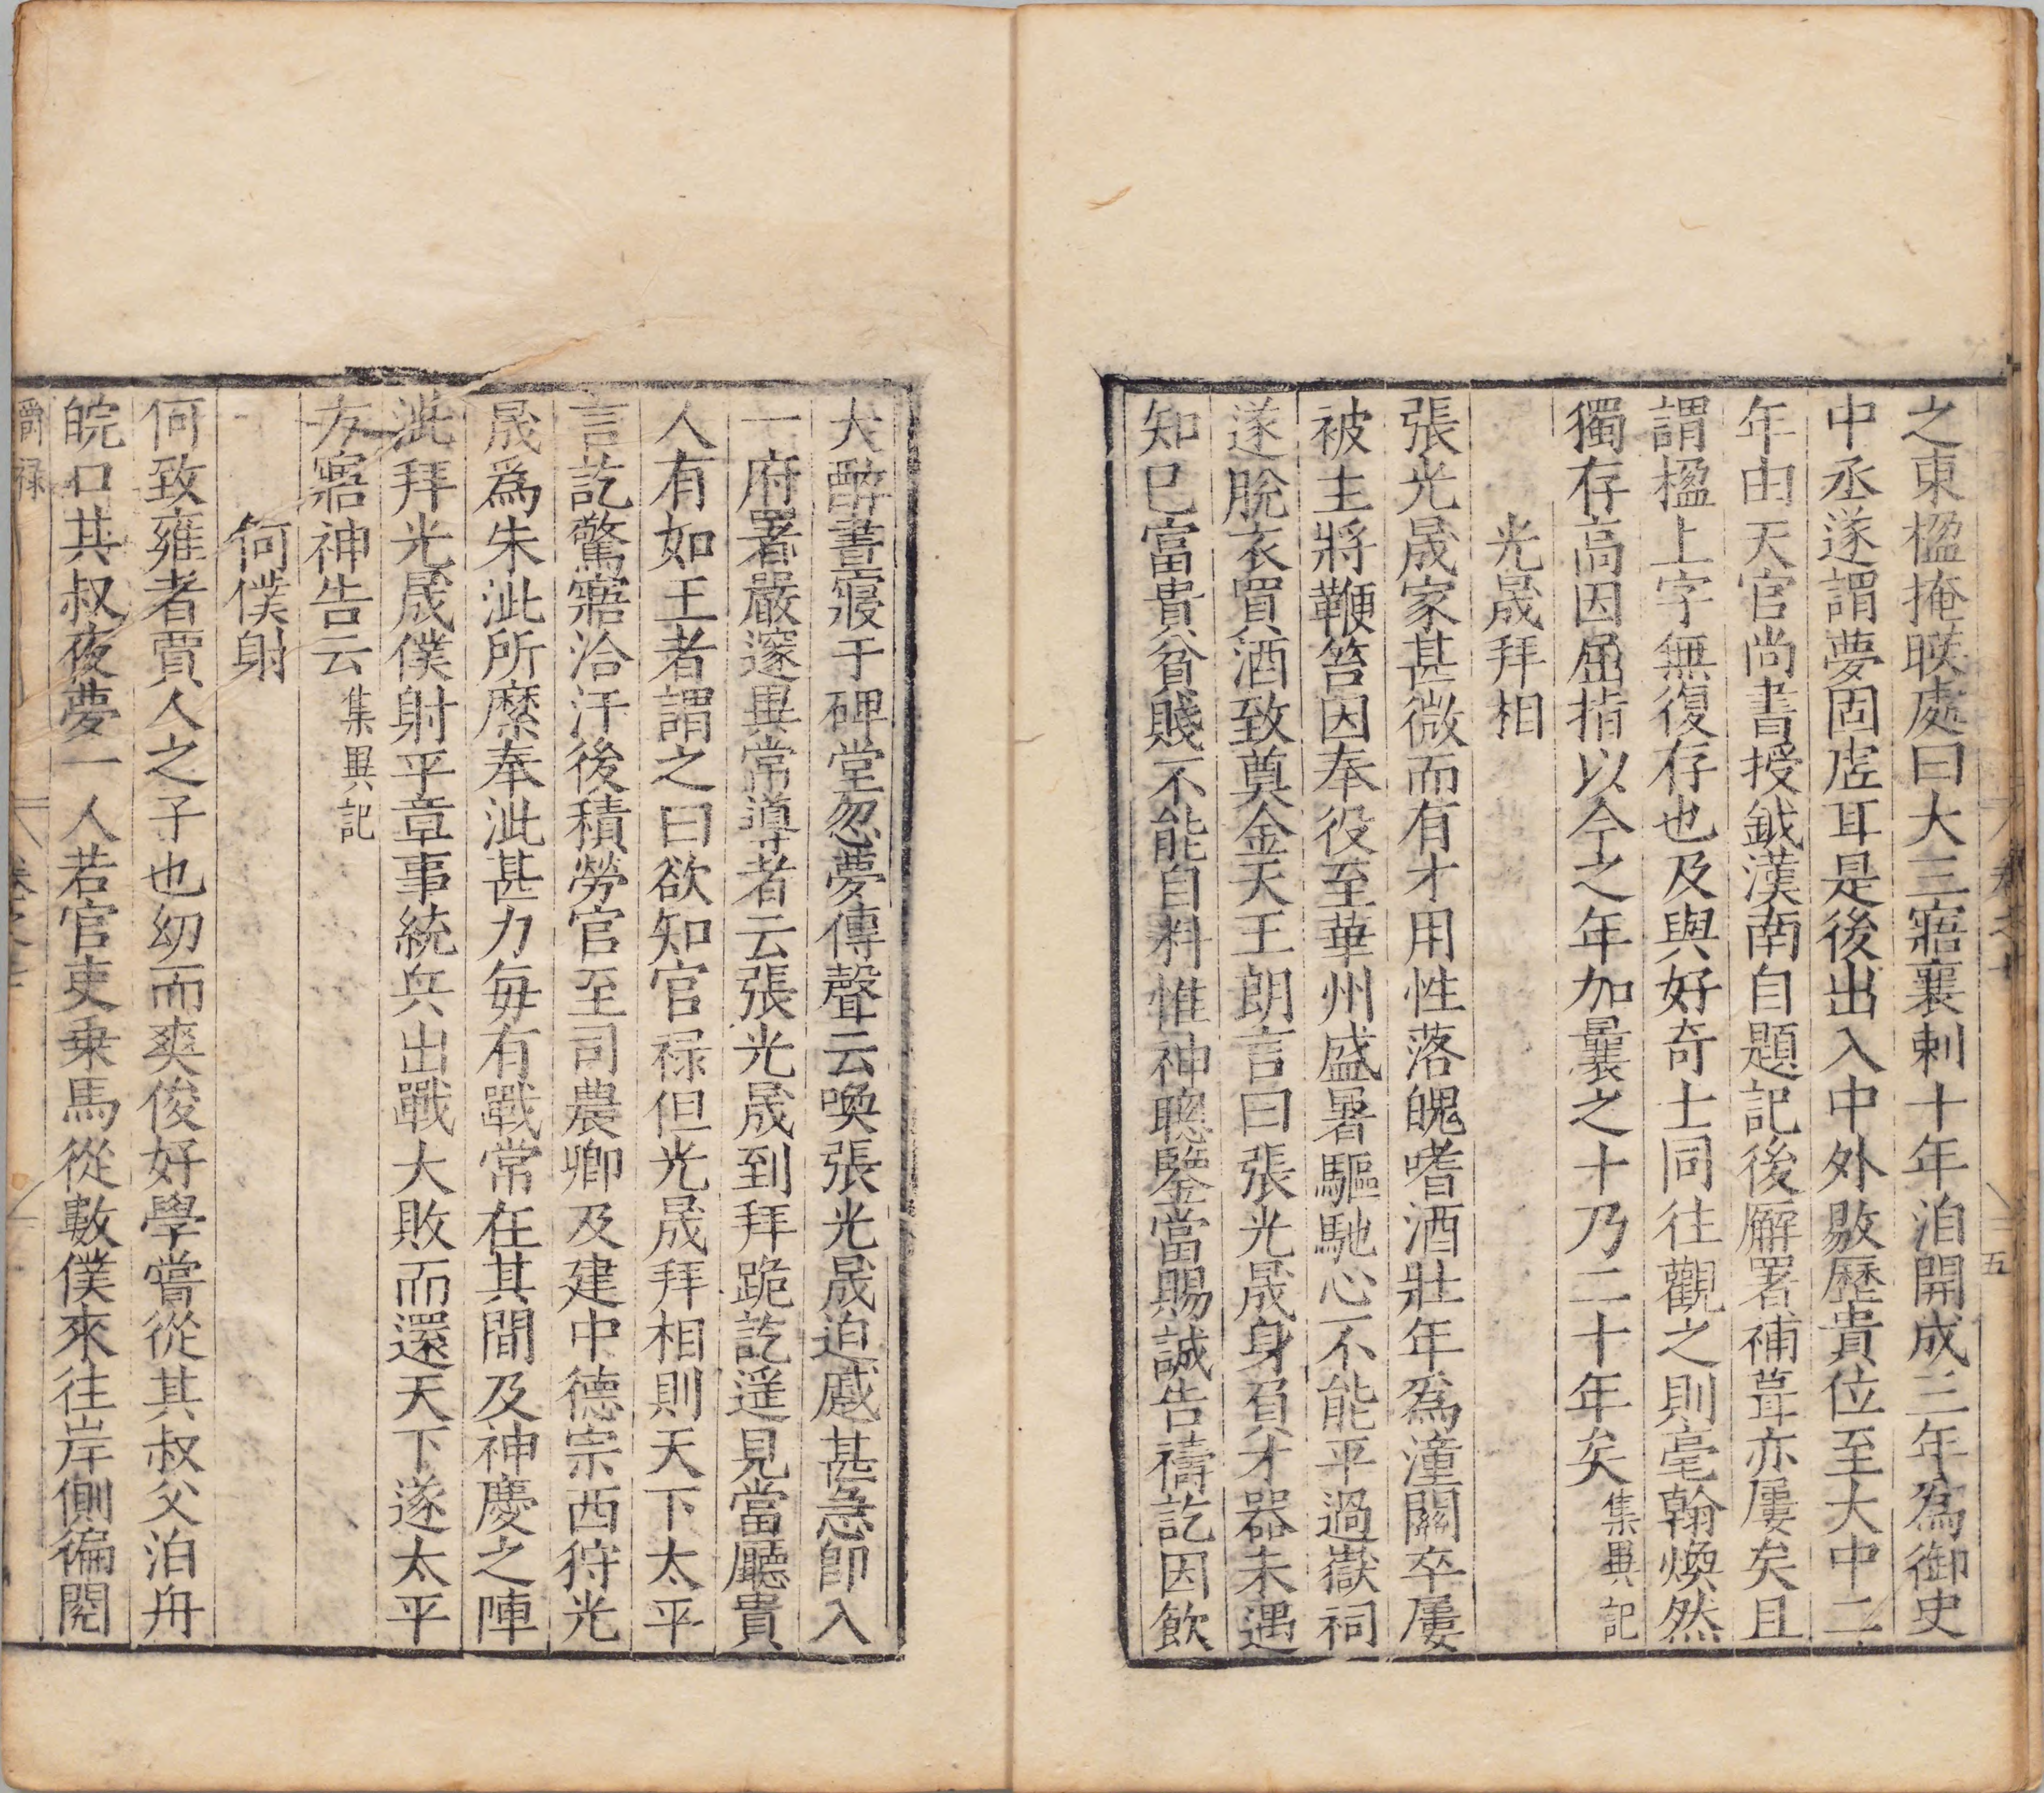 之東楹掩映處曰大三寤襄剌十年洎開成三年為御史
中丞遂謂夢固虛耳是後出入中外敭歷貴位至大中二
年由天官尚書授鉞漢南自題記後廨署補葺亦屢矣且
謂楹上字無復存也及與好奇士同往觀之則毫翰煥然
獨存高因屈指以今之年加曩之十乃二十年矣集異記
光晟拜相
張光晟家甚微而有才用性落魄嗜酒壯年為潼關卒屢
被主將鞭笞因奉役至華州盛暑驅馳心不能平過嶽祠
遂脫衣買酒致奠金天王朗言曰張光晟身負才器未遇
知巳富貴貧賤不能自料惟神聰鑒當賜誠告禱訖因飲
大醉晝寢于碑堂忽夢傳聲云喚張光晟迫慼甚急即入
一府署嚴邃異常導者云張光晟到拜跪訖遥見當廳貴
人有如王者謂之曰欲知官禄但光晟拜相則天下太平
言訖驚寤洽汗後積勞官至司農卿及建中德宗西狩光
晟爲朱泚所縻奉泚甚力每有戰常在其間及神慶之陣
泚拜光晟僕射平章事統兵出戰大敗而還天下遂太平
方寤神告云集異記
何僕射
何致雍者賈人之子也幼而爽俊好學嘗從其叔父泊舟
皖口其叔夜夢一人若官吏乗馬從數僕來往岸側徧閱